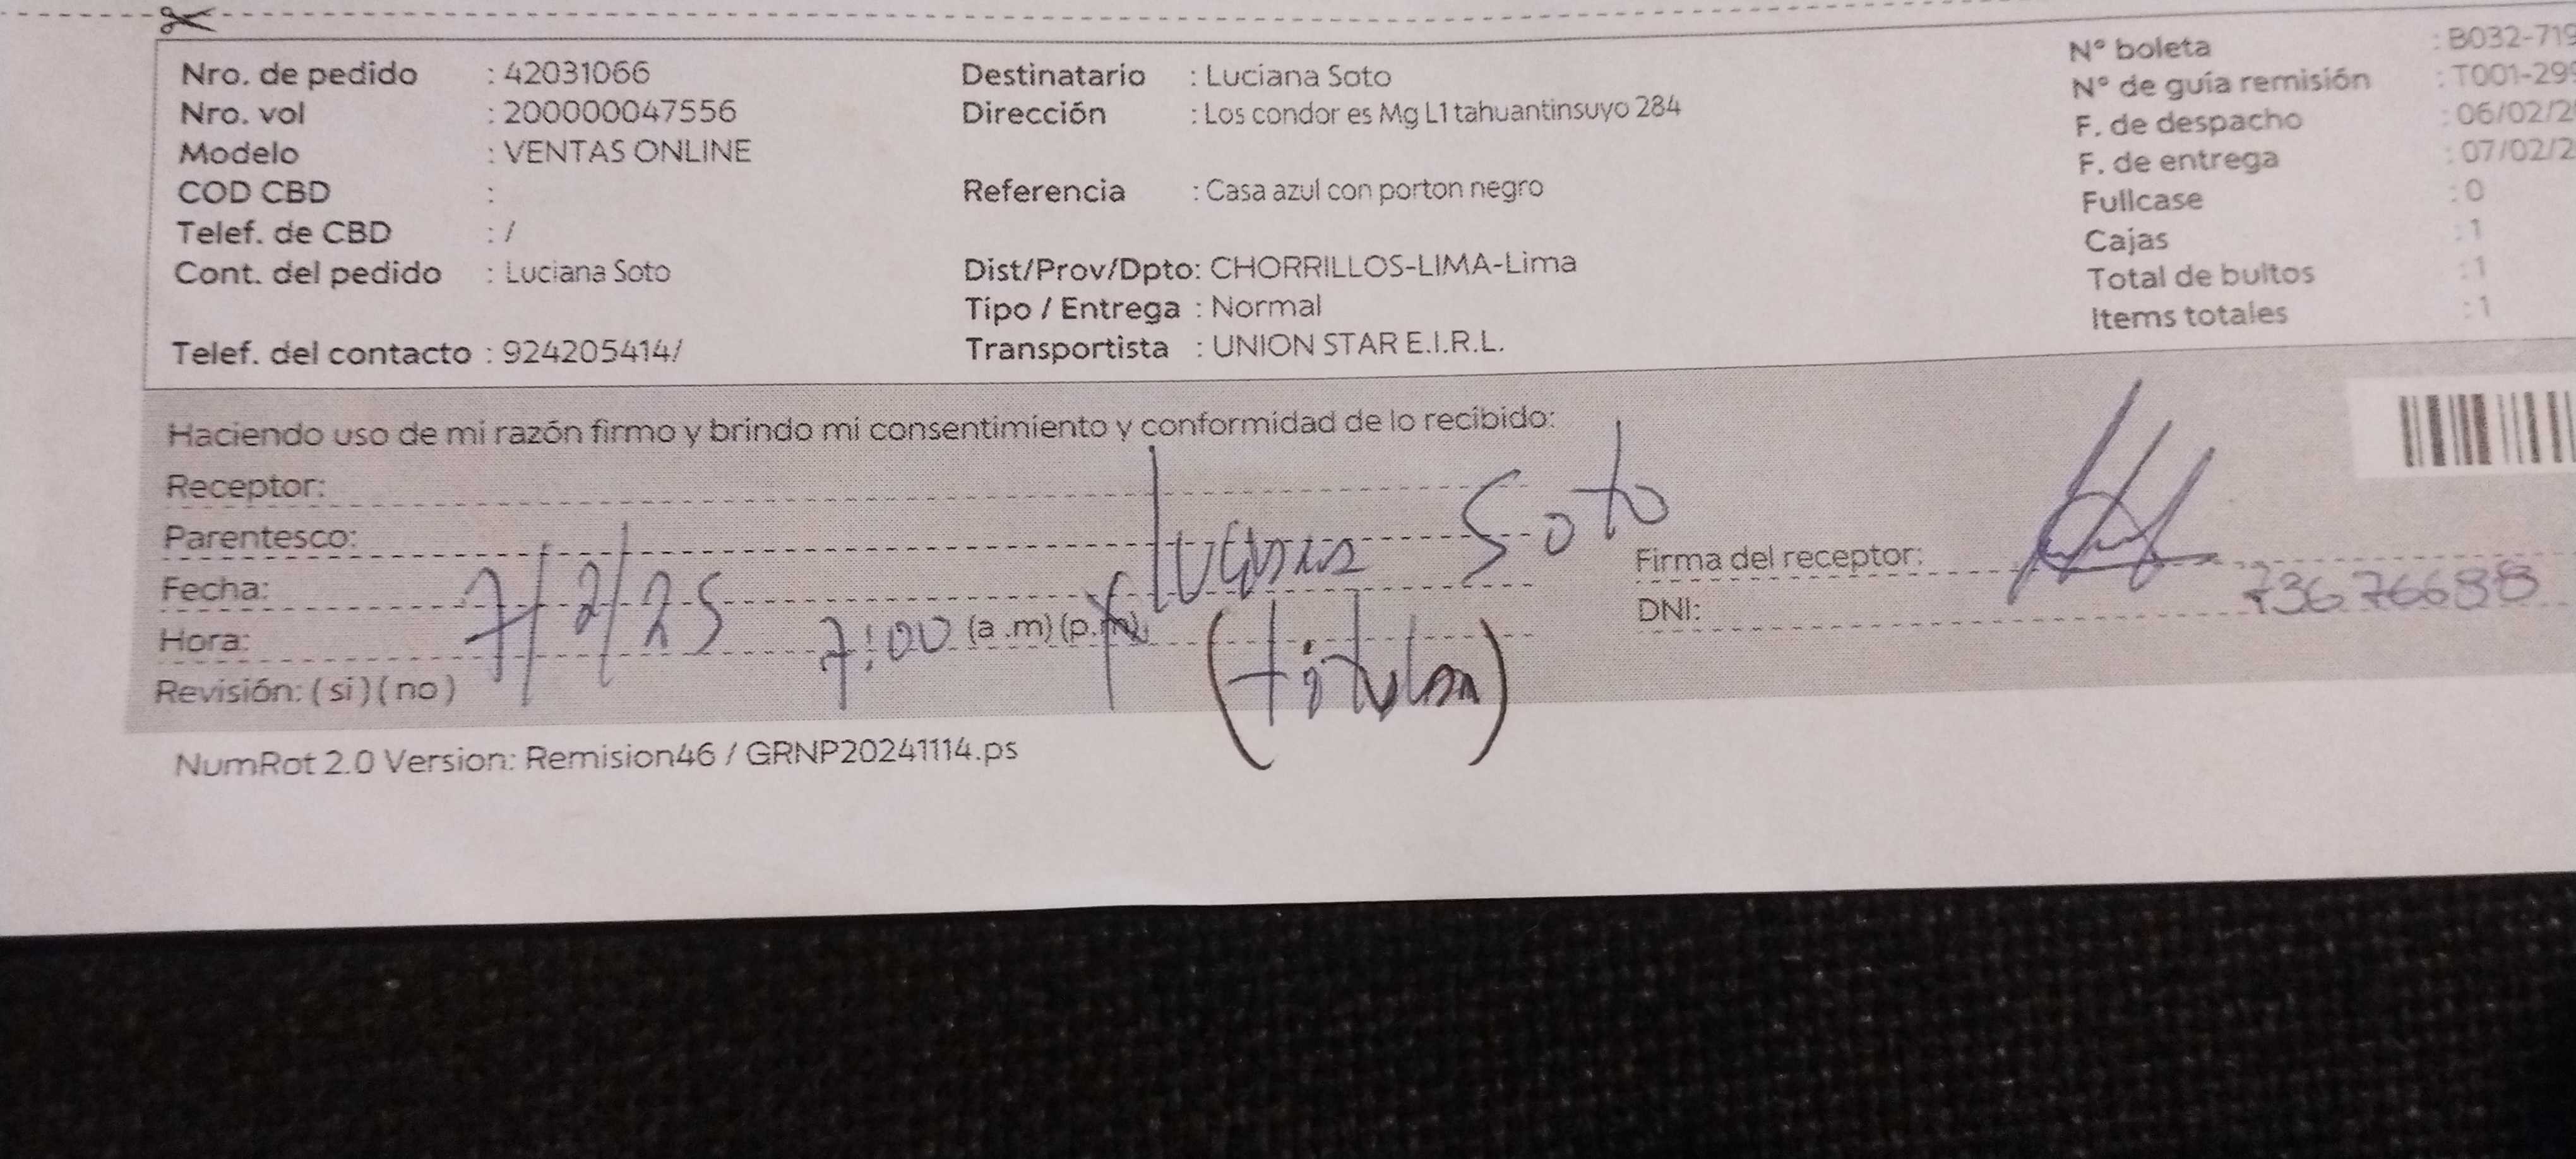 Nro. de pedido : 42031066
Nro. vol : 200000047556
Modelo : VENTAS ONLINE
COD CBD :
Telef. de CBD : /
Cont. del pedido : Luciana Soto
Telef. del contacto : 924205414/
Destinatario : Luciana Soto
Dirección : Los condor es Mg L1 tahuantinsuyo 284
Referencia : Casa azul con porton negro
Dist/Prov/Dpto: CHORRILLOS-LIMA-Lima
Tipo / Entrega : Normal
Transportista : UNION STAR E.I.R.L.
N° boleta : B032-719
N° de guía remisión : T001-299
F. de despacho : 06/02/2
F. de entrega : 07/02/2
Fullcase : 0
Cajas : 1
Total de bultos : 1
Items totales : 1
Haciendo uso de mi razón firmo y brindo mi consentimiento y conformidad de lo recibido:
Receptor:
Parentesco:
Luciana Soto
Fecha: 7/2/25
Hora: 7:00 (a .m) (p.m)
(titular)
Revisión: ( si ) ( no )
Firma del receptor:
DNI: 73676688
NumRot 2.0 Version: Remision46 / GRNP20241114.ps